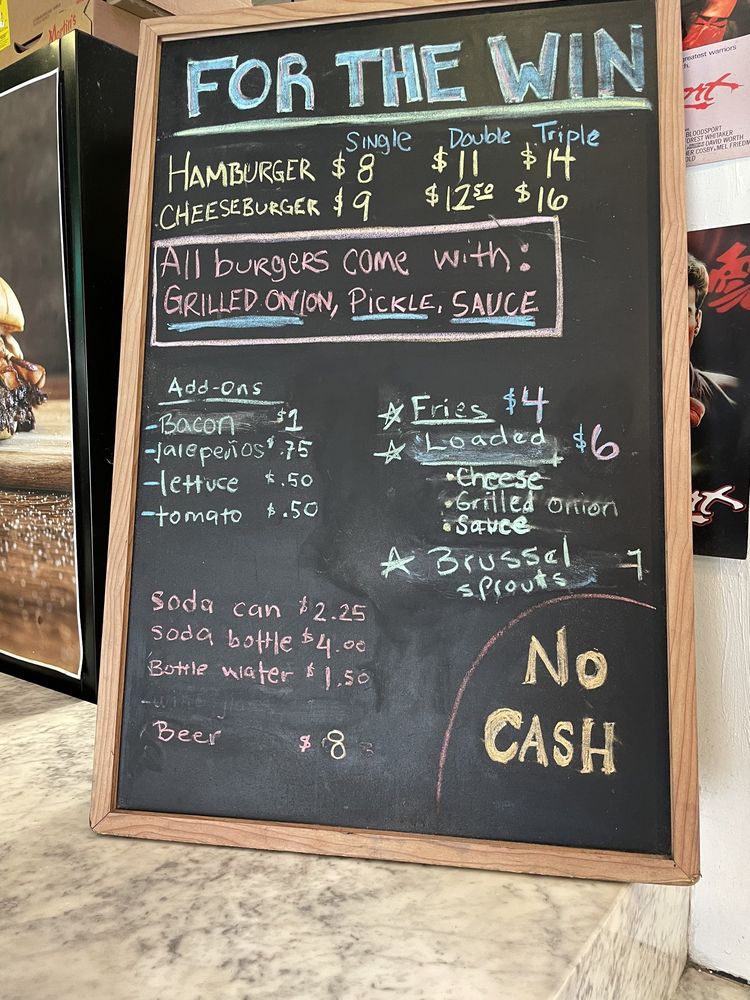 Martin's
FOR THE WIN
Single Double Triple
HAMBURGER $8 $11 $14
CHEESEBURGER $9 $12.50 $16
All burgers come with:
GRILLED ONION, PICKLE, SAUCE
Add-Ons
-Bacon $1
-jalepeños $.75
-lettuce $.50
-tomato $.50
☆ Fries $4
☆ Loaded $6
• Cheese
• Grilled onion
• Sauce
☆ Brussel 7
sprouts
Soda can $2.25
soda bottle $4.00
Bottle water $1.50
Beer $8
NO
CASH
greatest warriors
BLOODSPORT
FOREST WHITAKER
DAVID WORTH